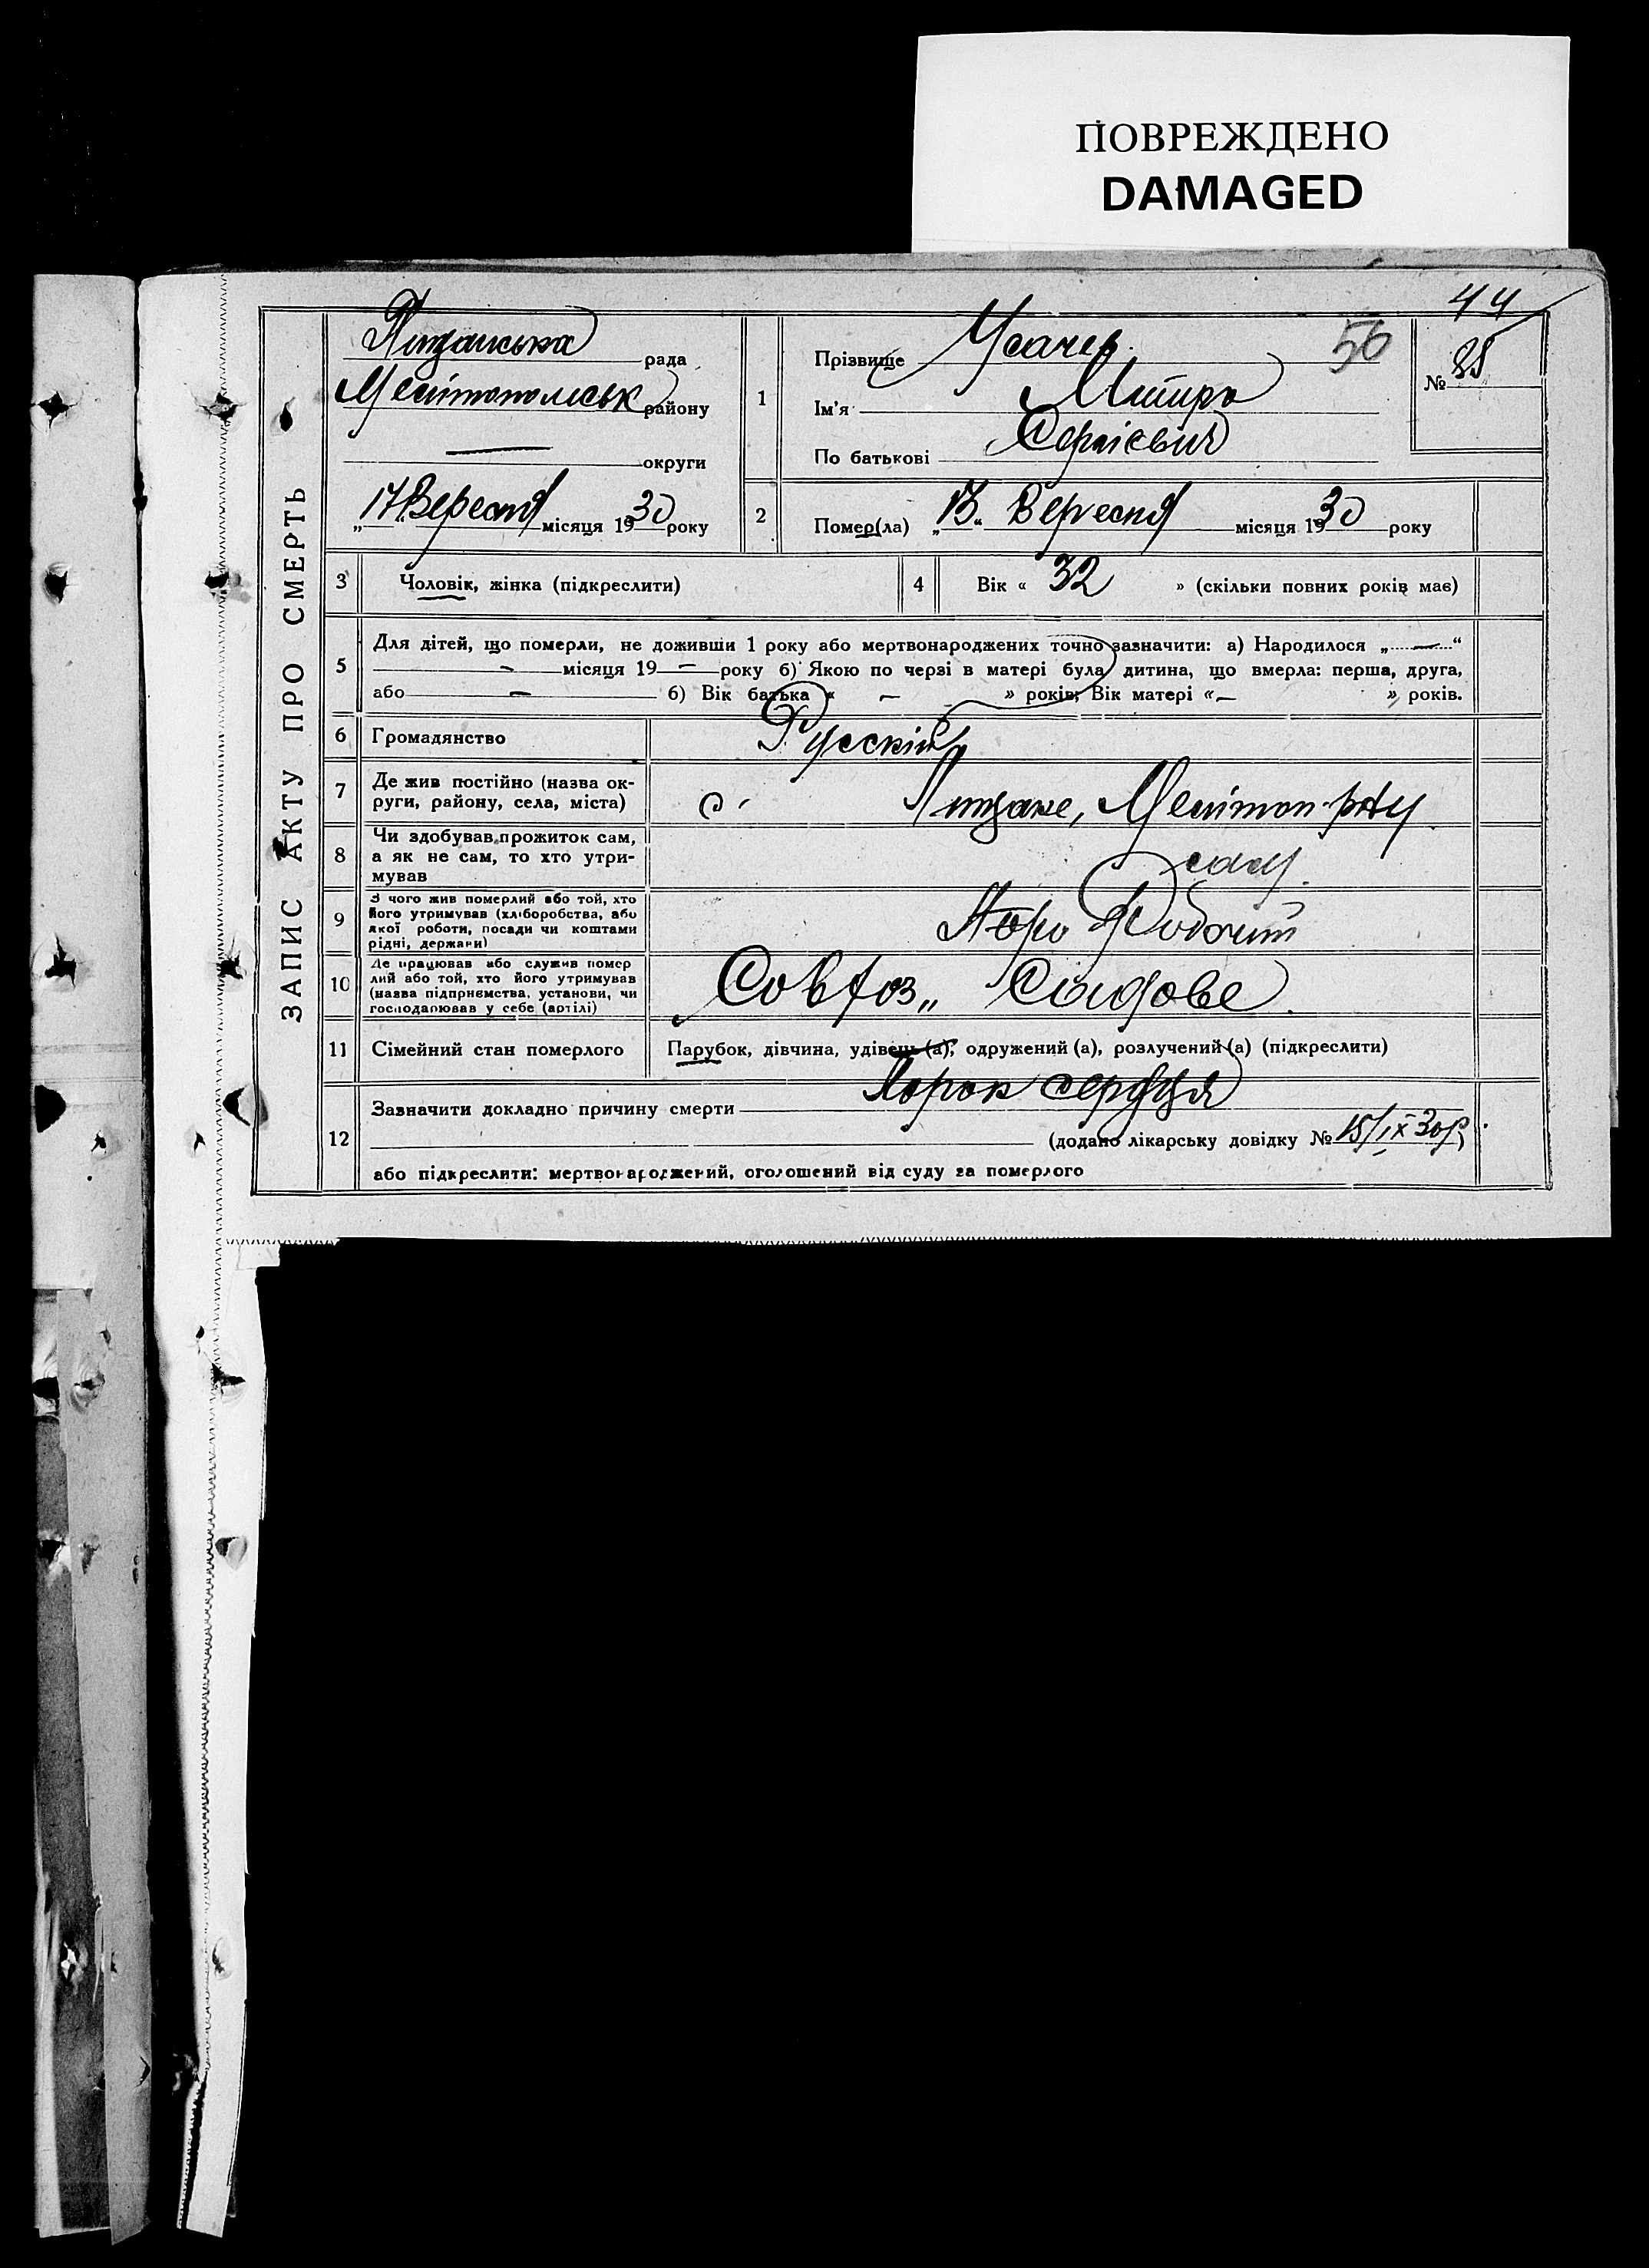 ПОВРЕЖДЕНО
DAMAGED
44
50
№ 25
ЗАПИС АКТУ ПРО СМЕРТЬ
рада
Мелітопольськ району
— округи
„17 Вересня місяця 1930 року
1
Прізвище Усачев
Ім'я Митро
По батькові Сергієвич
2
Помер(ла) „13“ Вересня місяця 1930 року
3 Чоловік, жінка (підкреслити)
4 Вік « 32 » (скільки повних років має)
5
Для дітей, що померли, не доживши 1 року або мертвонароджених точно зазначити: а) Народилося „ — “
— місяця 19 — року б) Якою по черзі в матері була дитина, що вмерла: перша, друга,
або — б) Вік батька « — » років; Вік матері « — » років.
6 Громадянство Русский
7 Де жив постійно (назва ок-
руги, району, села, міста) с. Мелітоп. р-ну
8 Чи здобував прожиток сам,
а як не сам, то хто утри-
мував
сам
9 З чого жив померлий або той, хто
його утримував (хліборобства, або
якої роботи, посади чи коштами
рідні, держави)
Робочий
10 Де працював або служив помер
лий або той, хто його утримував
(назва підприємства, установи, чи
господарював у себе (артілі)
Совхоз „
11 Сімейний стан померлого Парубок, дівчина, удівець (а), одружений (а), розлучений (а) (підкреслити)
12
Зазначити докладно причину смерти Порок сердця
(додано лікарську довідку № 15/IX 30р)
або підкреслити: мертвонароджений, оголошений від суду за померлого